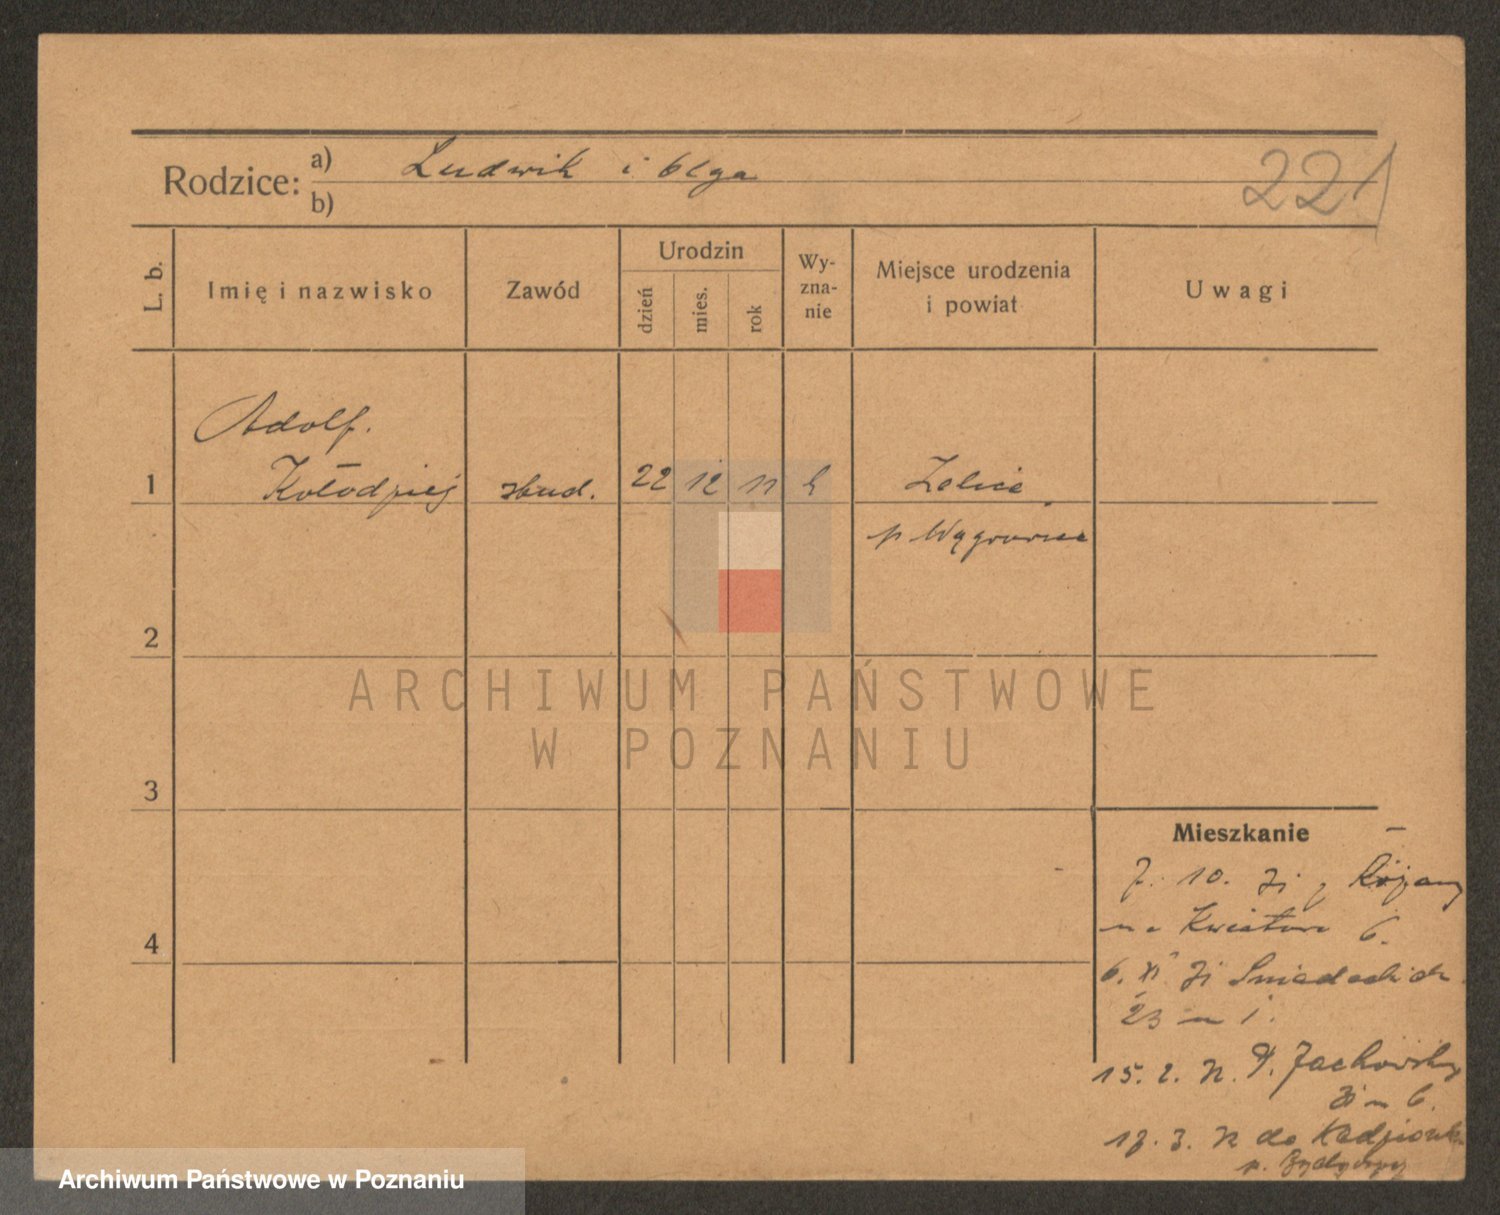 Rodzice: a) Ludwik i Olga
b)
221
L. b.
Imię i nazwisko
Zawód
Urodzin
dzień
mies.
rok
Wy-
zna-
nie
Miejsce urodzenia
i powiat
Uwagi
Adolf.
1 Kołodziej stud. 22 12 11 Zelice
p Wągrowiec
2
3
4
ARCHIWUM PAŃSTWOWE
W POZNANIU
Mieszkanie
7. 10. 31 z Różany
na Kwiatowa 6.
6. XI 31 Śniadeckich
23 m 1.
15. 2. 32. Pl.
31 m 6.
17. 3. 32 do
p. Bydgoszcz
Archiwum Państwowe w Poznaniu